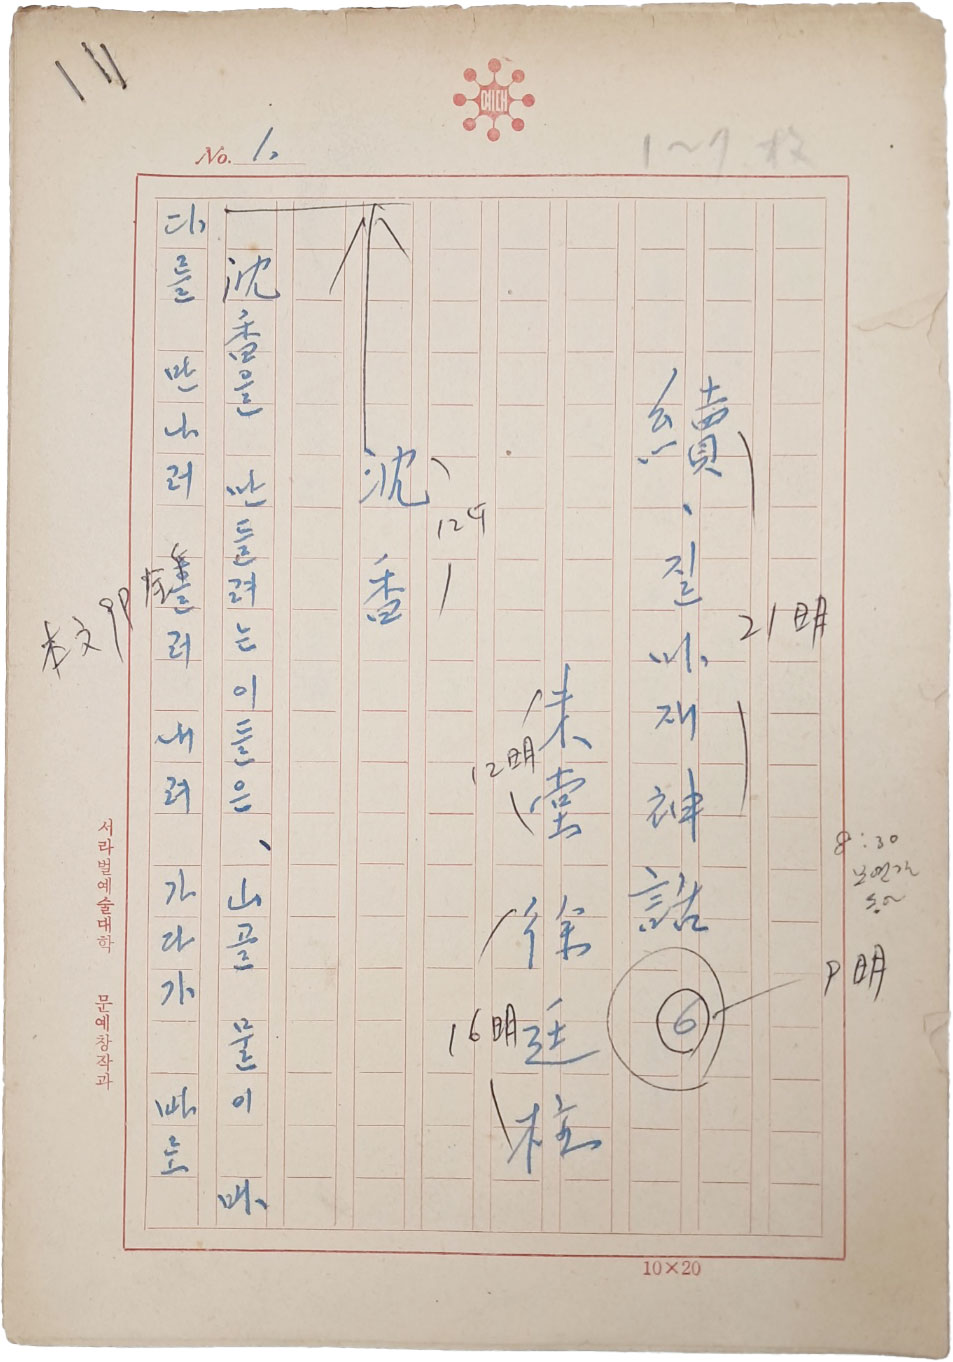 예대
No. 1.
1~7 枚
續、질마재神話 ⑥
21明
P明
未堂 徐廷柱
12明
16明
沈 香
沈香을 만들려는 이들은、山골 물이 바
다를 만나러 흘러 내려 가다가 바로
本文 9P
8:30
서라벌예술대학 문예창작과
10×20